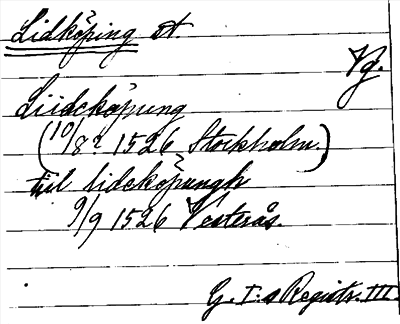 Lidköping st
Vg.
Liidekøpung
(10/8? 1526 Stockholm.)
till lideköpungh
9/9 1526 Vesterås.
G. I:s Registr. III.